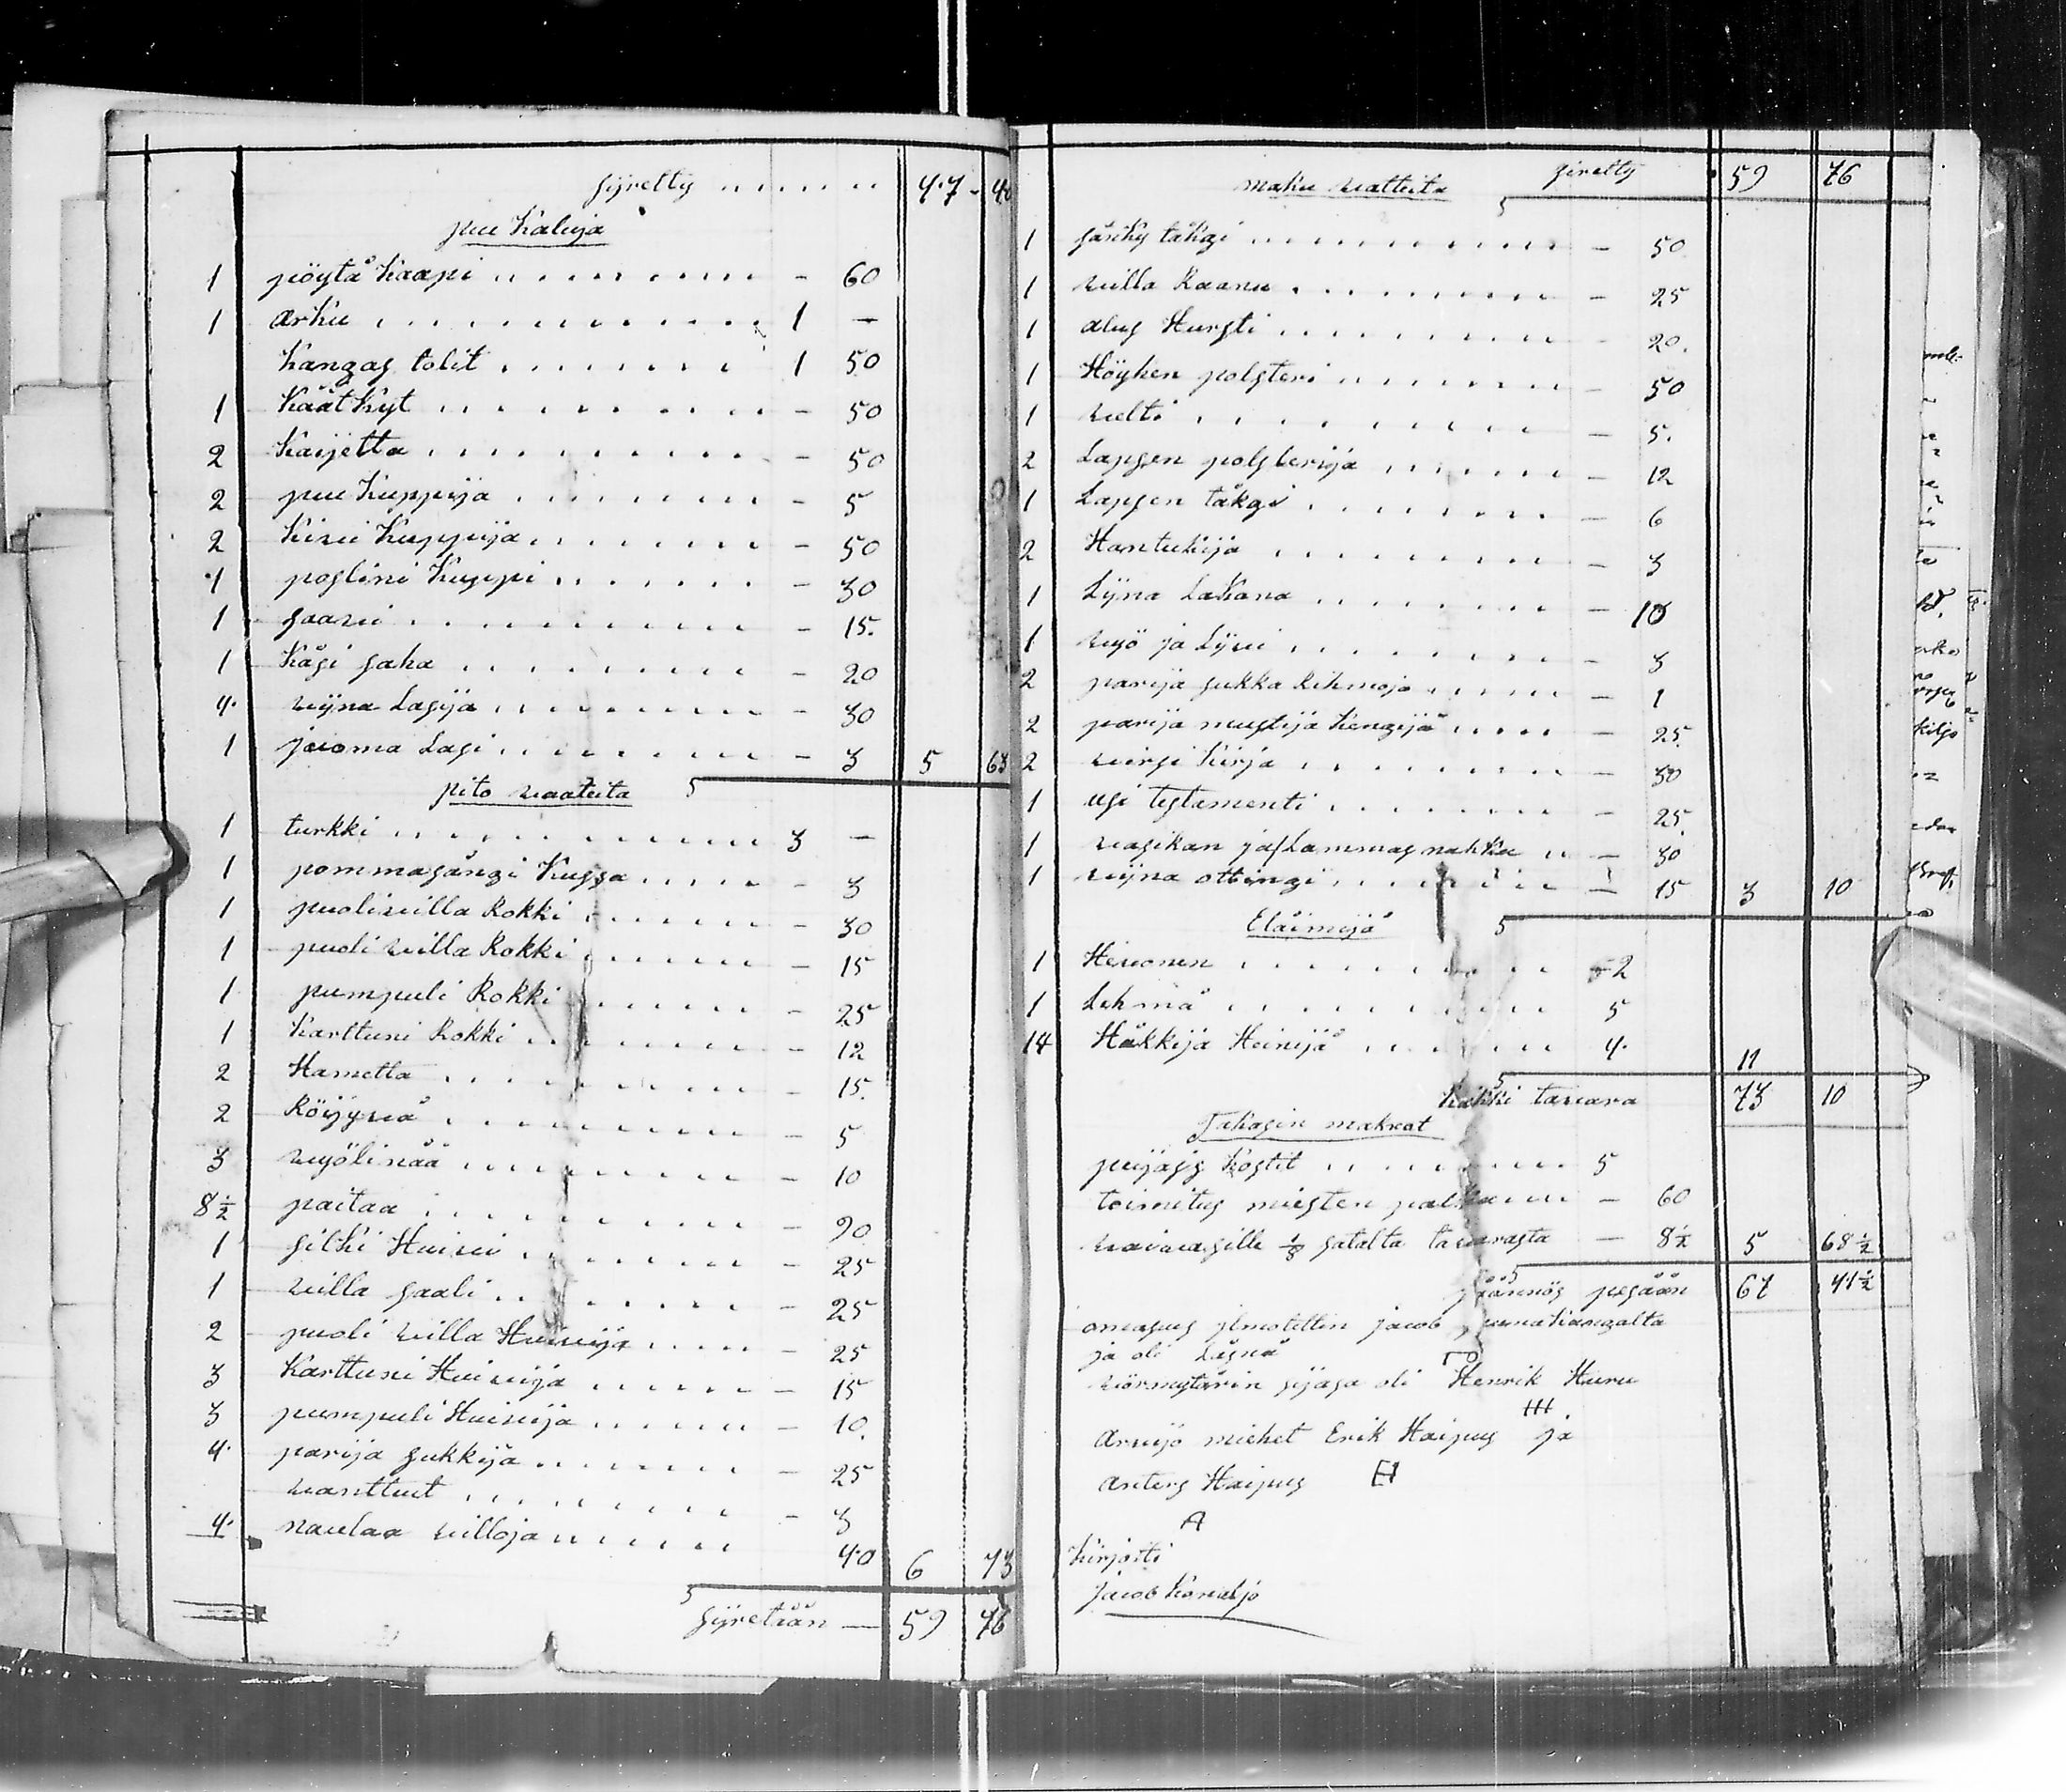 syretty . . . . . . 47 - 40
puu Kaluja
1 pöytä Kaapi . . . . . . . . - 60
1 arku . . . . . . . . . . . . 1 -
Kangas tolit . . . . . . . 1 50
1 Käät Kyt . . . . . . . . . - 50
2 Kaijetta . . . . . . . . . . - 50
2 puu Kuppija . . . . . . . . - 5
2 Kivi Kuppija . . . . . . . - 50
1 poslini Kuppi . . . . . . . - 30
1 saavi . . . . . . . . . . . - 15.
1 Käsi saha . . . . . . . . . - 20
4. viina Lasija . . . . . . . . - 30
1 juoma Lasi . . . . . . . . - 3 5 63
pito vaateita
1 turkki . . . . . . . . . . . 3 -
1 pommasängi Kussa . . . . . - 3
1 puolivilla Rokki . . . . . . - 30
1 puoli villa Rokki . . . . . . - 15
1 pumpuli Rokki . . . . . . - 25
1 Karttuni Rokki . . . . . . . - 12
2 Hametta . . . . . . . . . - 15.
2 Röijyvä . . . . . . . . . . - 5
3 vyölinää . . . . . . . . . - 10
8½ paitaa . . . . . . . . . . - 90
1 silki Huivi . . . . . . . . - 25
1 villa saali . . . . . . . . - 25
2 puoli villa Huivija . . . . . - 25
3 Karttuni Huivija . . . . . . - 15
3 pumpuli Huivija . . . . . . - 10.
4. parija sukkija . . . . . . . - 25
vanttut . . . . . . . . . - 3
4. naulaa villoja . . . . . . 40 6 73
syretään — 59 76
maku vatteita siretty 59 76
1 särky täkgi . . . . . . . . . . - 50
1 villa Raanu . . . . . . . . . - 25
1 alus Hursti . . . . . . . . . - 20.
1 Höyhen polsteri . . . . . . . - 50
1 velti . . . . . . . . . . - 5.
2 Lapsen polsterija . . . . . . - 12
1 Lapsen täkgi . . . . . . . . - 6
2 Hantukija . . . . . . . . . - 3
1 Lijna Lakana . . . . . . . . - 10
1 vyö ja Lijvi . . . . . . . . - 3
2 parija sukka Rihmoja . . . . . - 1
2 parija mustija Kengijä . . . . . - 25.
2 virsi Kirja . . . . . . . . . - 30
1 usi testamenti . . . . . . . . - 25.
1 vasikan ja Lammas nahka . . - 30
1 viina ottingi . . . . . . . . - 15 3 10
Eläimijä
1 Hevonen . . . . . . . . . . 2
1 Lehmä . . . . . . . . . . 5
14 Häkkijä Heinijä . . . . . . . 4. 11
Kaikki tavara 73 10
Takasin maksot
pesäs Kostit . . . . . . . . 5
toimitus miesten palka . . . - 60
vaivasille ⅛ satalta tavarasta - 8½ 5 68½
jäännös pesään 67 41½
omasus ilmotettin jacob
ja oli Läsnä
vörmytärin sijasa oli Henrik Huru
HH
arvijo miehet Erik Haipus ja
Anters Haipus EH
A
Kirjoiti
Jacob